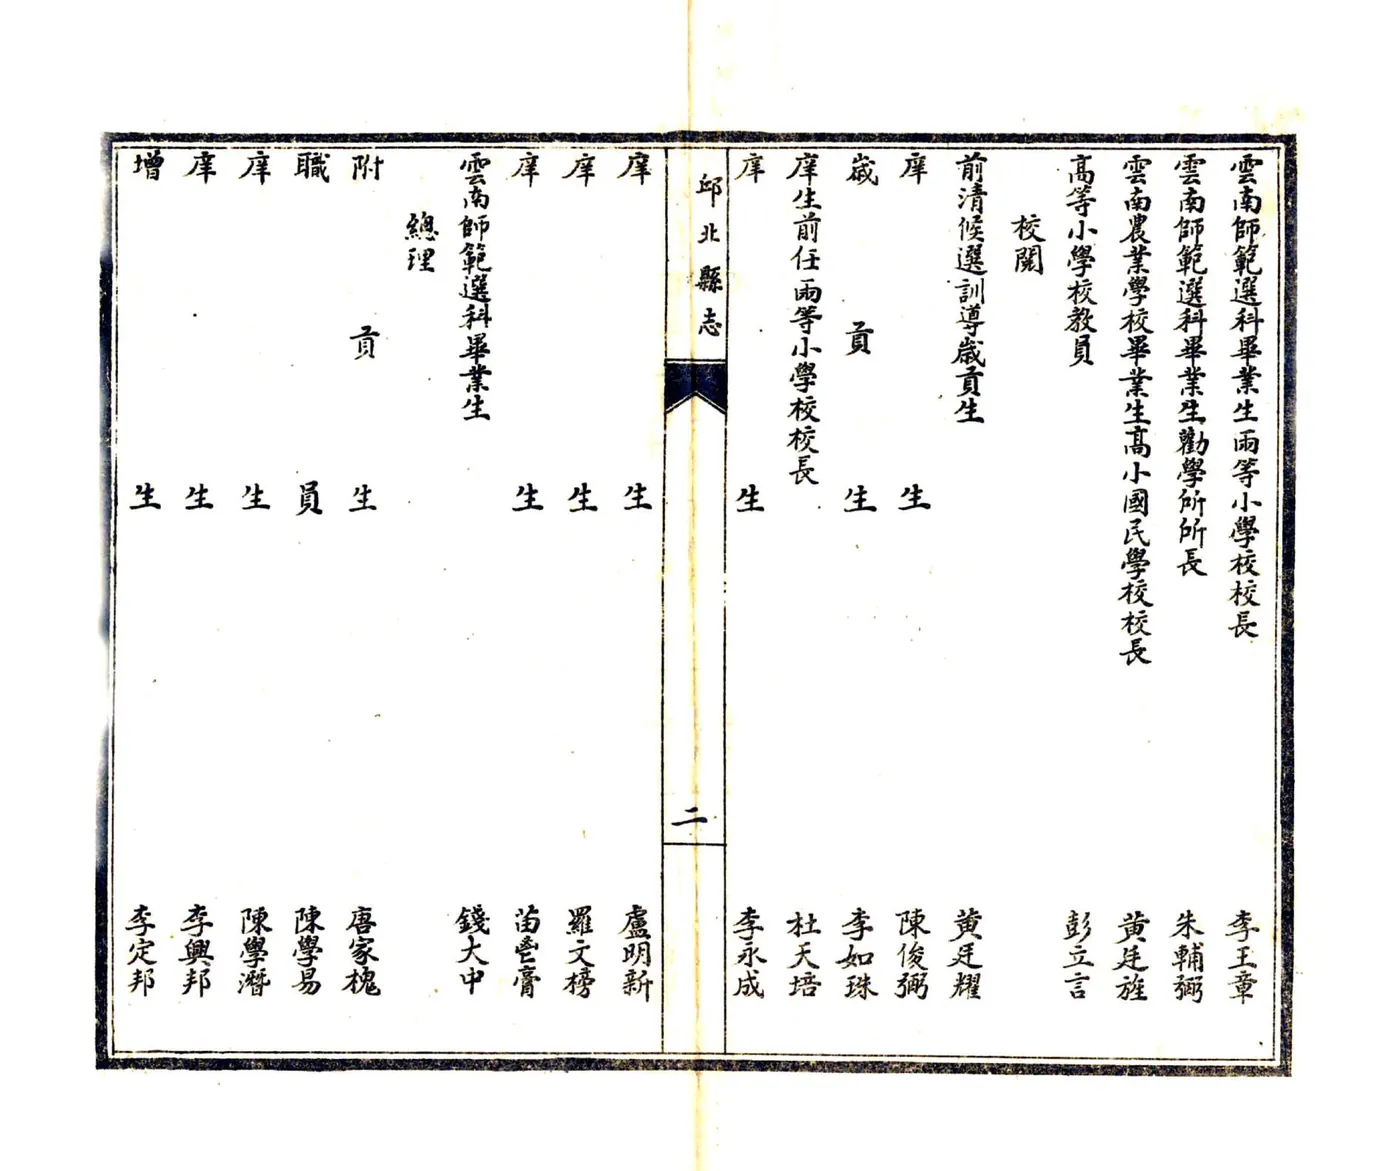 雲南師範選科畢業生兩等小學校校長 李玉章
雲南師範選科畢業生勸學所所長 朱輔弼
雲南農業學校畢業生高小國民學校校長 黃廷旌
高等小學校教員 彭立言
校閱
前清候選訓導歲貢生 黃廷耀
庠生 陳俊弼
歲貢生 李如珠
庠生前任兩等小學校校長 杜天培
庠生 李永成
邱北縣志
二
庠生 盧明新
庠生 羅文榜
庠生 苗 膏
雲南師範選科畢業生 錢大中
總理
附貢生 唐家槐
職員 陳學易
庠生 陳學潛
庠生 李興邦
增生 李定邦